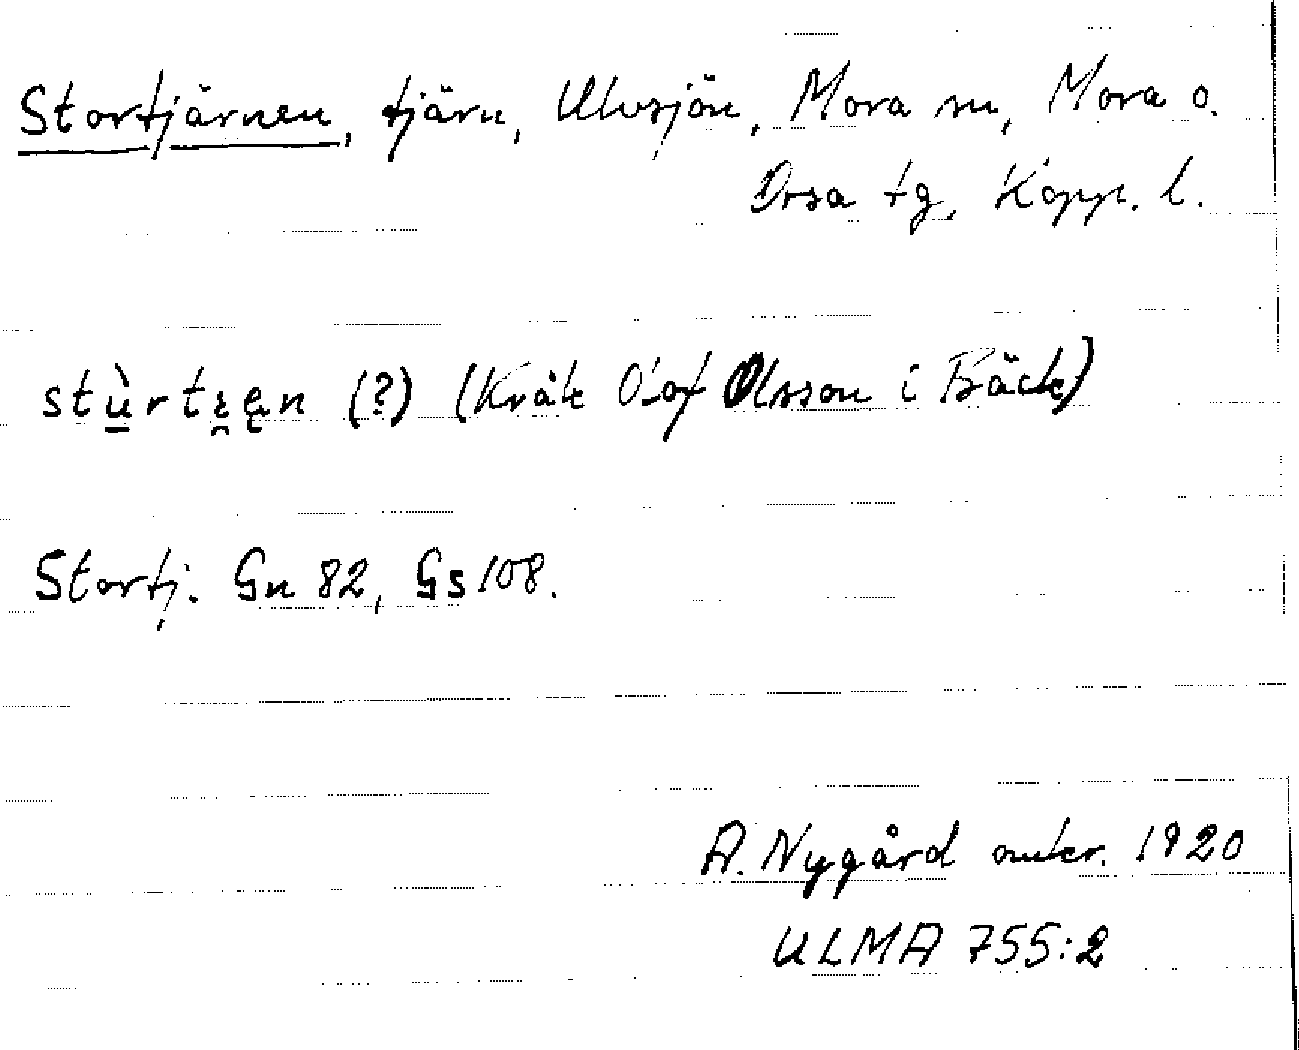 Stortjärnen, tjärn, Ulvsjön, Mora sn, Mora o.
Orsa tg, Kopp. l.
(?) (Kråk Olof Olsson i Bäck)
Stortj. Gn 82, Gs 108.
A. Nygård omkr. 1920
ULMA 755:2